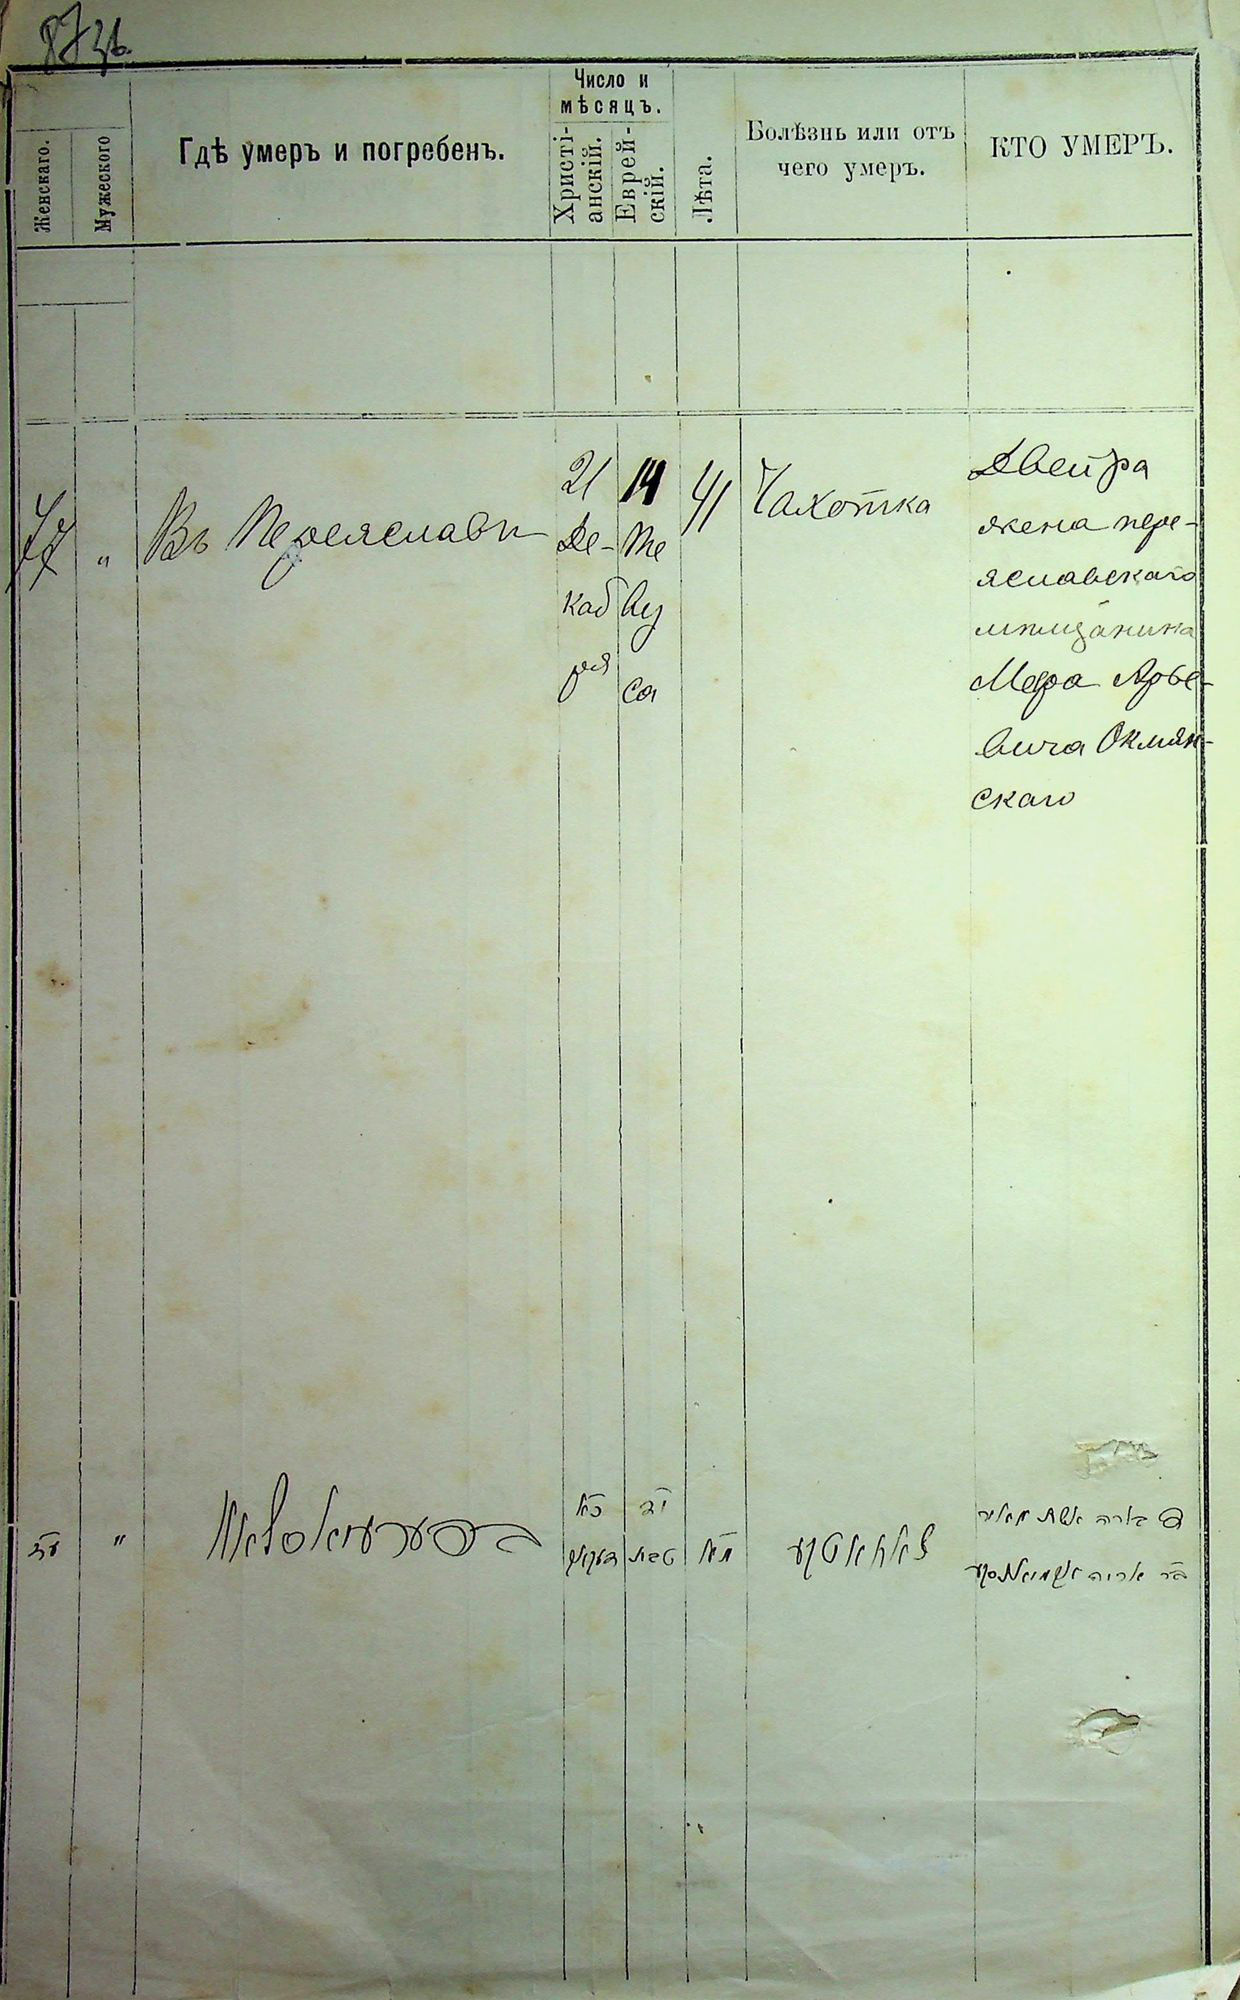 Женскаго.
Мужескаго
Гдѣ умеръ и погребенъ.
Число и
мѣсяцъ.
Христі-
анскій.
Еврей-
скій.
Лѣта.
Болѣзнь или отъ
чего умеръ.
КТО УМЕРЪ.
77
"
Въ Переяславѣ
21
Де-
каб
ря
14
Те
ву
са
41
Чахотка
Двейра
жена пере-
яславскаго
мѣщанина
Меера Арье-
вича Окмян-
скаго
עז
"
כא
יד
טבת
מא
דבורה אשת מאיר
בר אריה